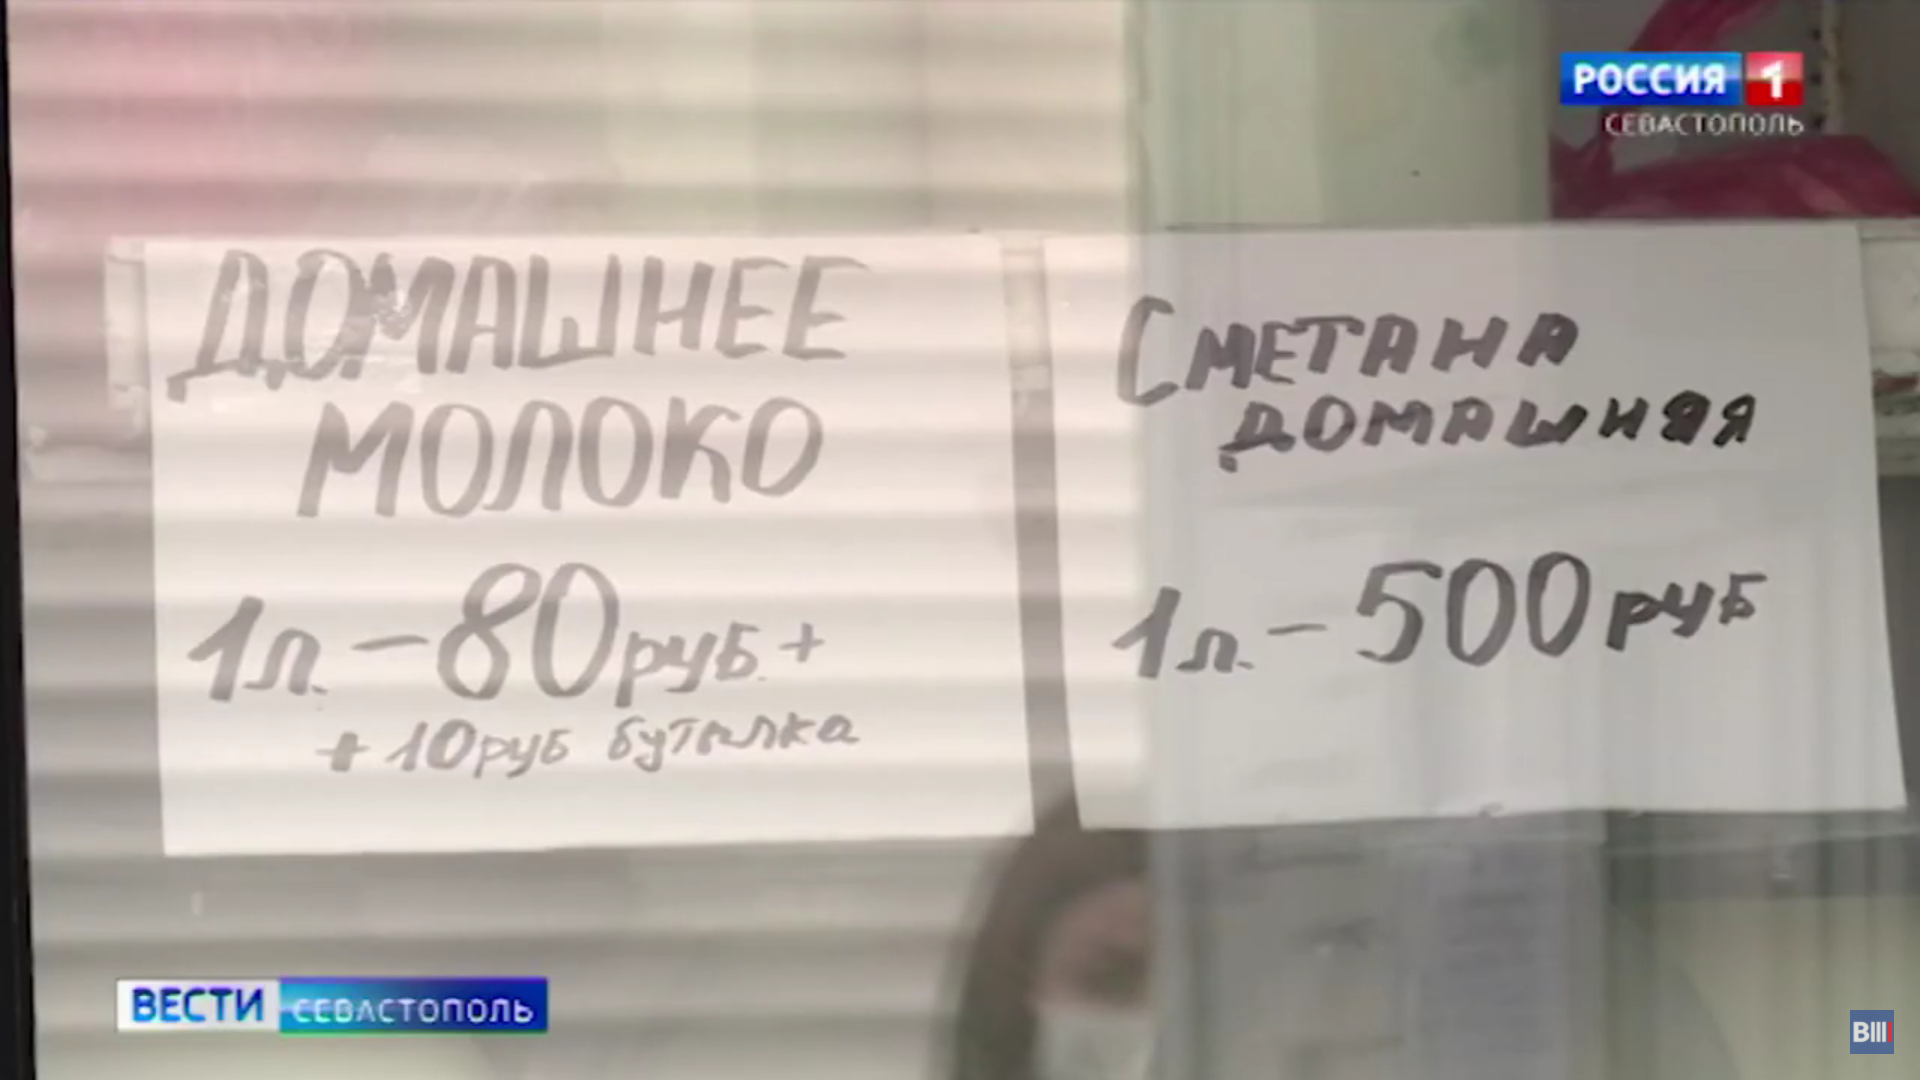 РОССИЯ 1
СЕВАСТОПОЛЬ
ДОМАШНЕЕ
МОЛОКО
1л. – 80 руб. +
+ 10 руб бутылка
СМЕТАНА
ДОМАШНЯЯ
1л. – 500 руб
ВЕСТИ СЕВАСТОПОЛЬ